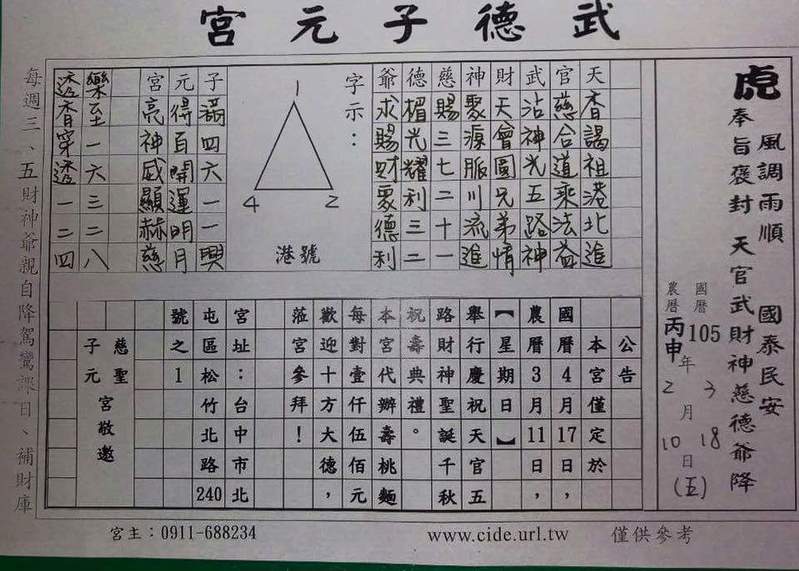 武德子元宮
虎
風調雨順　國泰民安
奉旨褒封　天官武財神慈德爺降
國曆105年3月18日(五)
農曆丙申2月10日
天香謁祖港北進
官慈合道乘法益
武沾神光五路神
財天曾圓兄弟情
神聚源脈川流進
慈賜三七二十一
德楣光耀利三二
爺求賜財眾德利
字示：
1
4 2
港號
子滿四六一一興
元得百開運明月
宮亮神威顯赫慈
樂至一六三二八
透香穿透一二四
公告
本宮僅定於
國曆4月17日，
農曆3月11日，
【星期日】
舉行慶祝天官五
路財神聖誕千秋
祝壽典禮。
本宮代辦壽桃麵
每對壹仟伍佰元
歡迎十方大德，
蒞宮參拜！
宮址：台中市北
屯區松竹北路240
號之1
慈聖
子元宮敬邀
每週三、五財神爺親自降駕鸞課日、補財庫
宮主：0911-688234
www.cide.url.tw
僅供參考